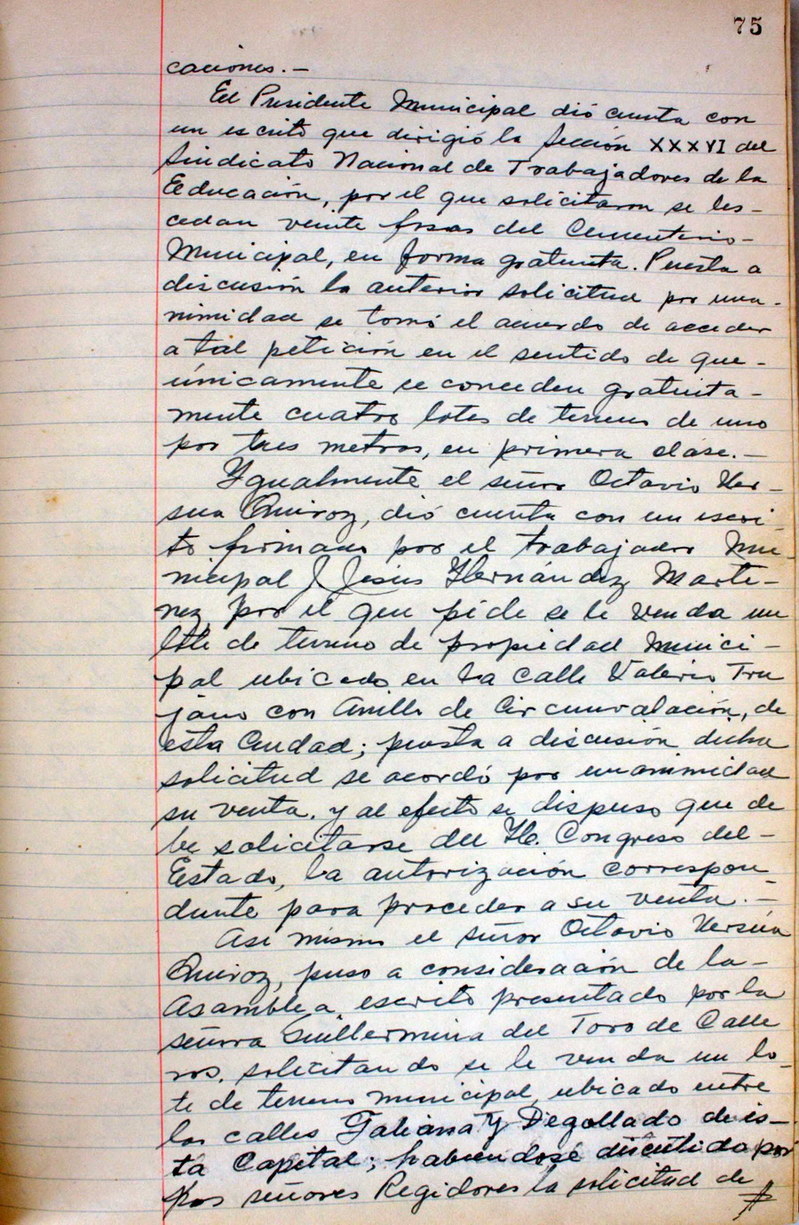 75
caciones.—
El Presidente Municipal dió cuenta con
un escrito que dirigió la Sección XXXVI del
Sindicato Nacional de Trabajadores de la
Educación, por el que solicitaron se les-
cedan veinte fosas del Cementerio-
Municipal, en forma gratuita. Puesta a
discusión la anterior solicitud por una-
nimidad se tomó el acuerdo de acceder
a tal petición en el sentido de que-
únicamente se conceden gratuita-
mente cuatro lotes de terreno de uno
por tres metros, en primera clase.—
Ygualmente el señor Octavio Ver-
súa Quiroz, dió cuenta con un escri-
to firmado por el trabajador Mu-
nicipal J Jesús Hernández Martí-
nez, por el que pide se le venda un
lote de terreno de propiedad Munici-
pal ubicado en la calle Valerio Tru
jano con Anillo de Circunvalación, de
esta Ciudad; puesta a discusión dicha
solicitud se acordó por unanimidad
su venta. y al efecto se dispuso que de
be solicitarse del H. Congreso del-
Estado, la autorización correspon
diente para proceder a su venta.—
Asi mismo el señor Octavio Versúa
Quiroz, puso a consideración de la-
Asamblea, escrito presentado por la
señora Guillermina del Toro de Calle
ros, solicitando se le venda un lo-
te de terreno municipal, ubicado entre
las calles Galeana y Degollado de és-
ta Capital; habiendose discutida por
los señores Regidores la solicitud de